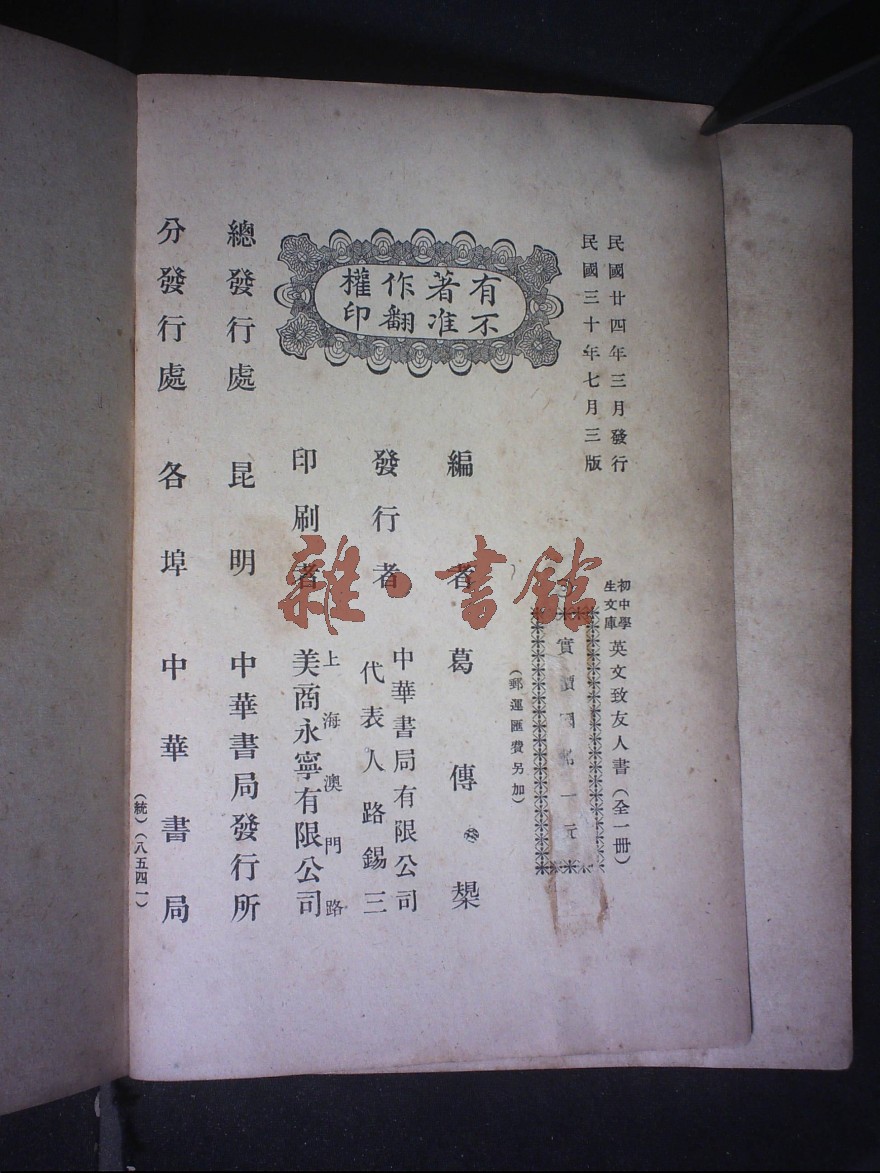 民國廿四年三月發行
民國三十年七月三版
初中學
生文庫
英文致友人書（全一冊）
實價國幣一元
（郵運匯費另加）
有著作權
不准翻印
編者 葛傳槼
發行者 中華書局有限公司
代表人路錫三
印刷者 上海澳門路
美商永寧有限公司
總發行處 昆明 中華書局發行所
分發行處 各埠 中華書局
（統）（八五四一）
雜·書館